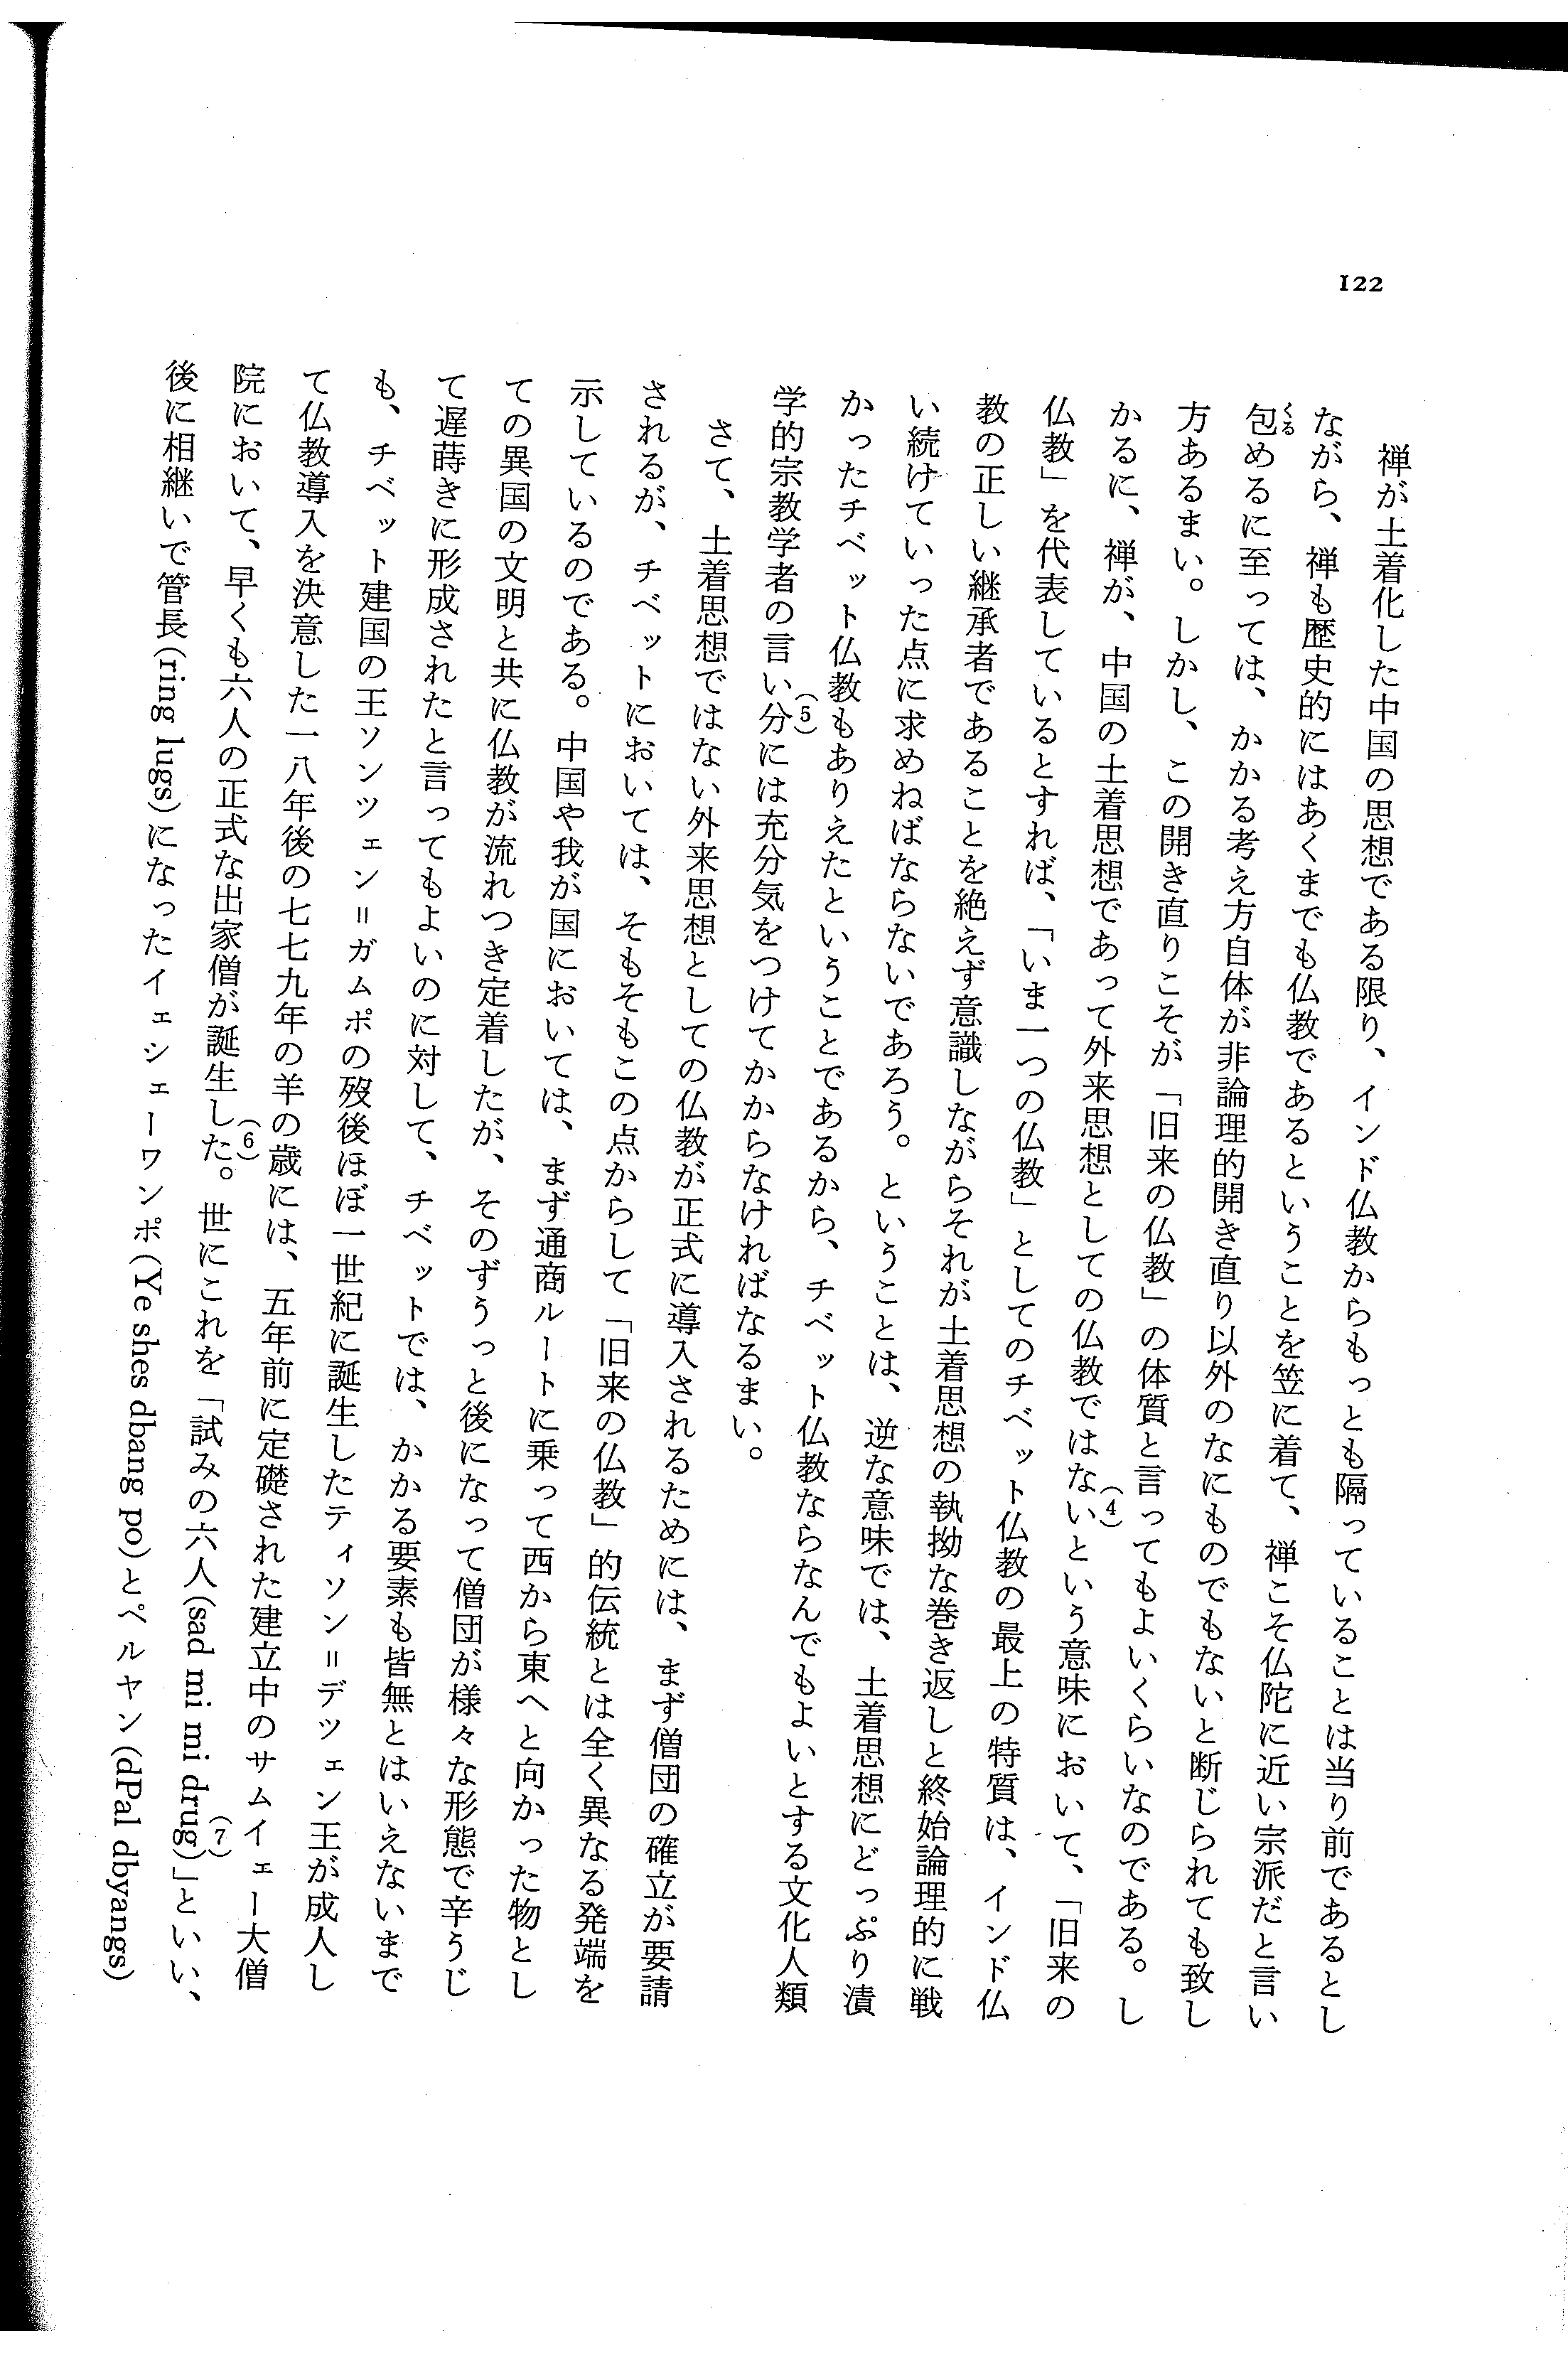 122
禅が土着化した中国の思想である限り、インド仏教からもっとも隔っていることは当り前であるとし
ながら、禅も歴史的にはあくまでも仏教であるということを笠に着て、禅こそ仏陀に近い宗派だと言い
包くるめるに至っては、かかる考え方自体が非論理的開き直り以外のなにものでもないと断じられても致し
方あるまい。しかし、この開き直りこそが「旧来の仏教」の体質と言ってもよいくらいなのである。し
かるに、禅が、中国の土着思想であって外来思想としての仏教ではない(4)という意味において、「旧来の
仏教」を代表しているとすれば、「いま一つの仏教」としてのチベット仏教の最上の特質は、インド仏
教の正しい継承者であることを絶えず意識しながらそれが土着思想の執拗な巻き返しと終始論理的に戦
い続けていった点に求めねばならないであろう。ということは、逆な意味では、土着思想にどっぷり漬
かったチベット仏教もありえたということであるから、チベット仏教ならなんでもよいとする文化人類
学的宗教学者の言い分(5)には充分気をつけてかからなければなるまい。
さて、土着思想ではない外来思想としての仏教が正式に導入されるためには、まず僧団の確立が要請
されるが、チベットにおいては、そもそもこの点からして「旧来の仏教」的伝統とは全く異なる発端を
示しているのである。中国や我が国においては、まず通商ルートに乗って西から東へと向かった物とし
ての異国の文明と共に仏教が流れつき定着したが、そのずうっと後になって僧団が様々な形態で辛うじ
て遅蒔きに形成されたと言ってもよいのに対して、チベットでは、かかる要素も皆無とはいえないまで
も、チベット建国の王ソンツェン＝ガムポの歿後ほぼ一世紀に誕生したティソン＝デツェン王が成人し
て仏教導入を決意した一八年後の七七九年の羊の歳には、五年前に定礎された建立中のサムイェー大僧
院において、早くも六人の正式な出家僧が誕生した(6)。世にこれを「試みの六人(sad mi mi drug)(7)」といい、
後に相継いで管長(ring lugs)になったイェシェーワンポ(Ye shes dbang po)とペルヤン(dPal dbyangs)